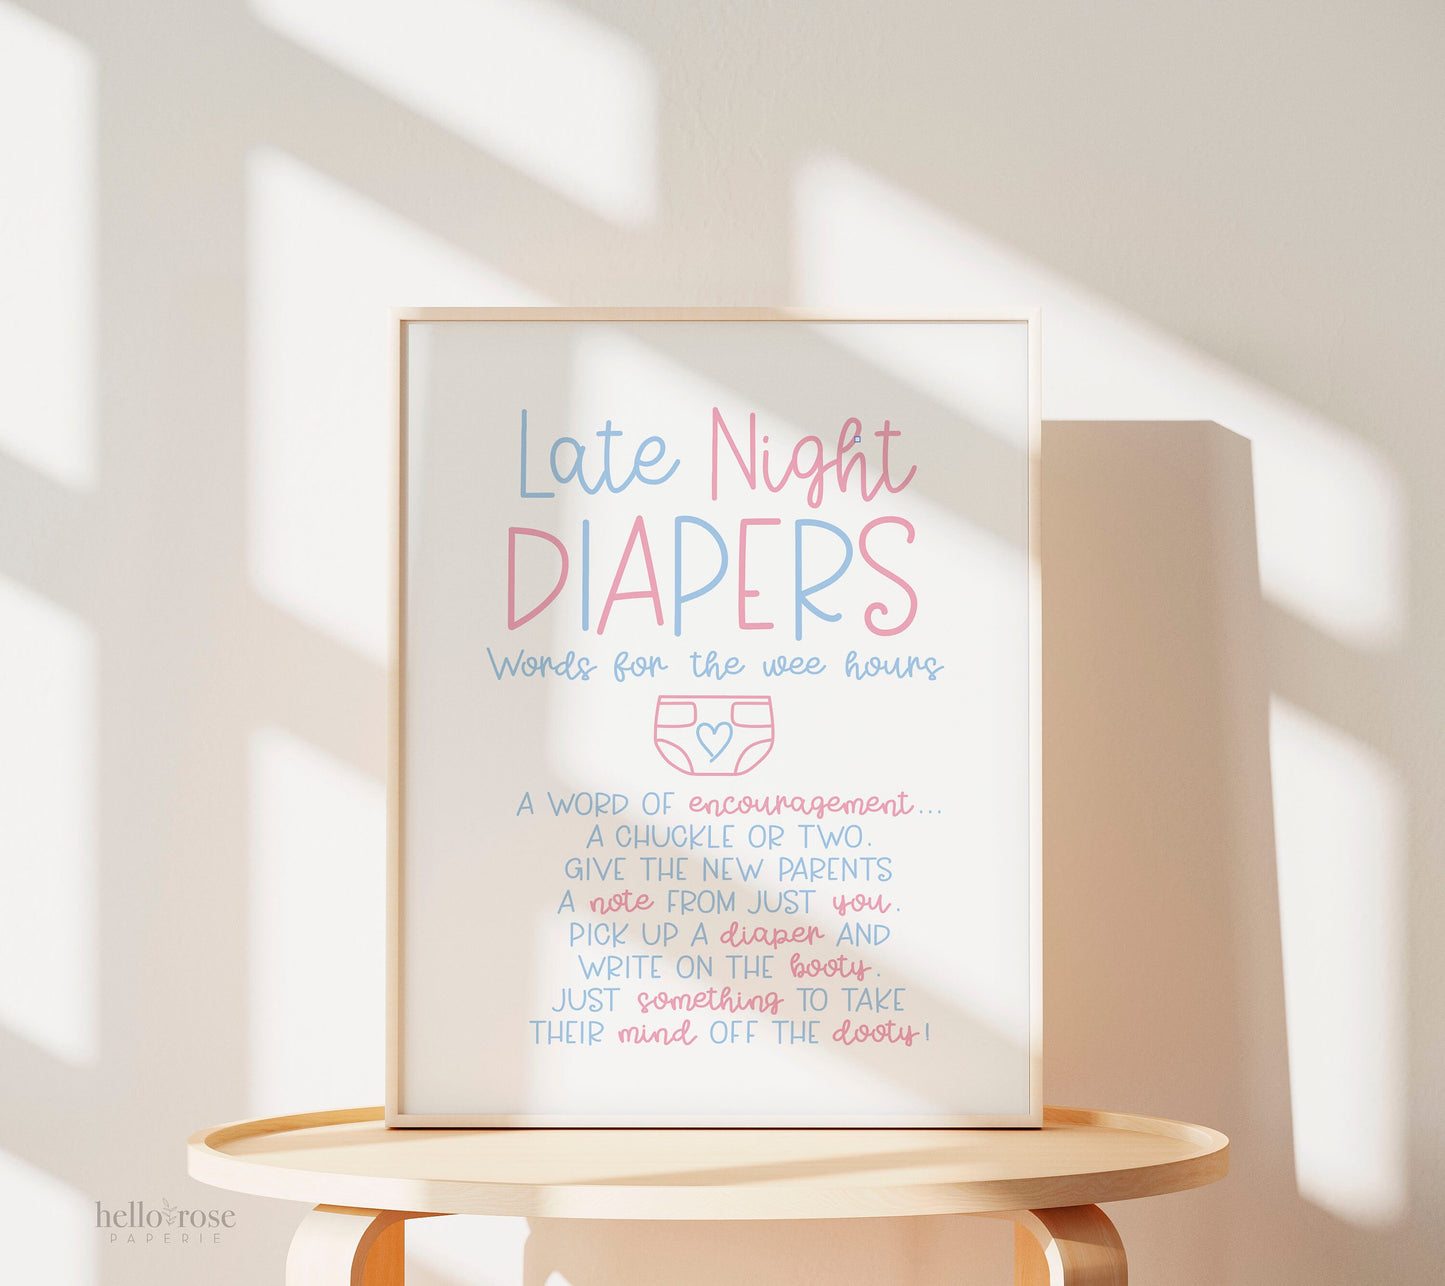 Late Night
DIAPERS
Words for the wee hours
A WORD OF encouragement...
A CHUCKLE OR TWO.
GIVE THE NEW PARENTS
A note FROM JUST you.
PICK UP A diaper AND
WRITE ON THE booty.
JUST something TO TAKE
THEIR mind OFF THE dooty!
hello rose
PAPERIE